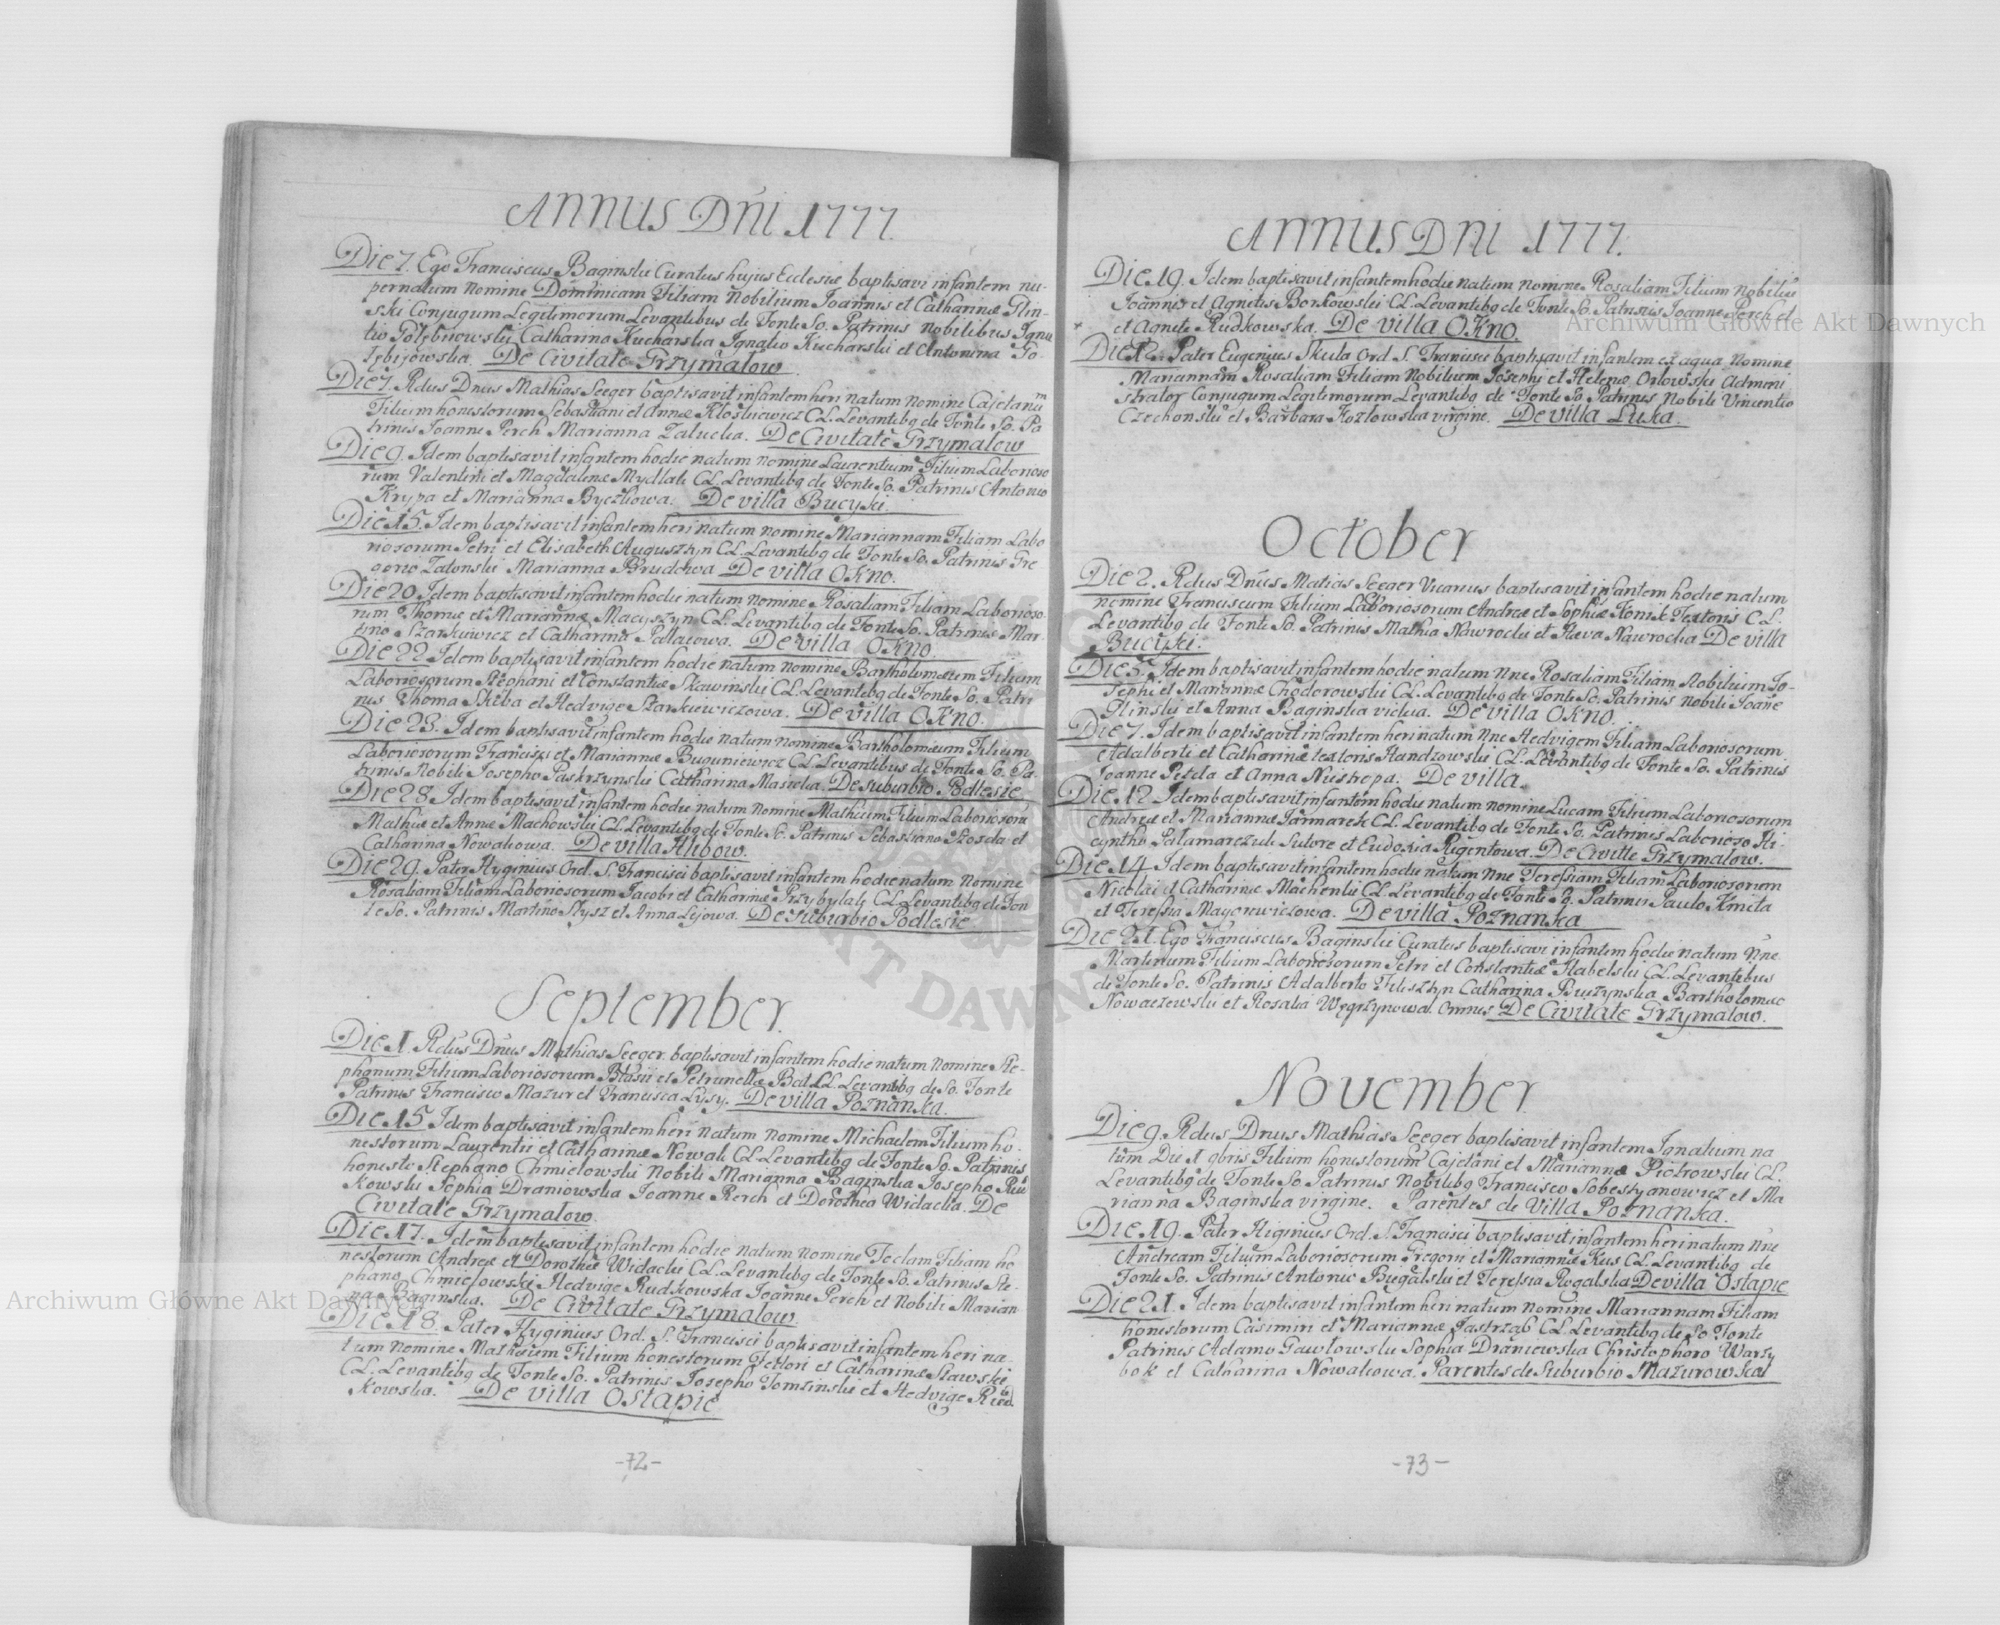 ANNUS DNI 1777.
Die 7. Ego Franciscus Baginski Curatus hujus Ecclesiæ baptisavi infantem nu-
pernatum nomine Dominicam Filiam Nobilium Joannis et Catharinæ Glin-
ski Conjugum Legitimorum Levantibus de Fonte So. Patrinis Nobilibus Igna
tio Catharina Kucharska Ignatio Kucharski et Antonina Go-
De Civitate Grzymałow
Die 7. Rdus Dnus Mathias Seeger baptisavit infantem heri natum nomine Cajetanum
Filium honestorum Sebastiani et Annæ Kłoskiewicz CL. Levantibq de Fonte So. Pa
trinis Joanne Perch Marianna Zalucka. De Civitate Grzymałow
Die 9. Idem baptisavit infantem hodie natum nomine Laurentium Filium Laborioso
rum Valentini et Magdalenæ Mydlak CL. Levantibq de Fonte So. Patrinis Antonio
Krypa et Marianna Byczkowa. De villa Bucyki.
Die 15. Idem baptisavit infantem heri natum nomine Mariannam Filiam Labo
riosorum Petri et Elisabeth Auguszyn CL. Levantibq de Fonte So. Patrinis Gre
gorio Zalonski Marianna Brudowa De villa OKno.
Die 20 Idem baptisavit infantem hodie natum nomine Rosaliam Filiam Laborioso
rum Thomæ et Mariannæ Macyszyn CL. Levantibq de Fonte So. Patrinis Mar-
tino Szarkiewicz et Catharina Pallatowa. De villa OKno.
Die 22 Idem baptisavit infantem hodie natum nomine Bartholomæum Filium
Laboriosorum Stephani et Constantiæ Skawinski CL. Levantibq de Fonte So. Patri
nis Thoma Skiba et Hedvige Szarkiewiczowa. De villa OKno.
Die 23. Idem baptisavit infantem hodie natum nomine Bartholomæum Filium
Laboriosorum Francisci et Mariannæ Buguniewicz CL Levantibus de Fonte So. Pa-
trinis Nobili Josepho Paskrzynski Catharina Masiela. De suburbio Podlesie
Die 28 Idem baptisavit infantem hodie natum nomine Mathæum Filium Laboriosorum
Mathiæ et Annæ Machowski CL. Levantibq de Fonte So. Patrinis Sebastiano Szoszda et
Catharina Nowakowa. De villa Hlibow.
Die 29. Pater Hyginius Ord. S. Francisci baptisavit infantem hodie natum nomine
Rosaliam Filiam Laboriosorum Jacobi et Catharinæ Przybylak CL. Levantibq de Fon
te So. Patrinis Martino Słysz et Anna Lijowa. De Suburbio Podlesie
September.
Die 1. Rdus Dnus Mathias Seeger baptisavit infantem hodie natum nomine Ste-
phanum Filium Laboriosorum Błasii et Petrunellæ Bal CL. Levantibq de So. Fonte
Patrinis Francisco Mazur et Francisca Lysy. De villa Poznanka.
Die 15 Idem baptisavit infantem heri natum nomine Michaelem Filium ho-
nestorum Laurentii et Catharinæ Nowak CL Levantibq de Fonte So. Patrinis
honesto Stephano Chmielowski Nobili Marianna Baginska Josepho Rud
Kowski Sophia Draniowska Joanne Perch et Dorothea Widacka. De
Civitate Grzymałow.
Die 17. Idem baptisavit infantem hodie natum nomine Teclam Filiam ho
nestorum Andreæ et Dorotheæ Widacki CL. Levantibq de Fonte So. Patrinis Ste-
phano Chmielowski Hedvige Rudkowska Joanne Perch et Nobili Marian
na Baginska. De Civitate Grzymałow.
Die 18. Pater Hyginius Ord. S. Francisci baptisavit infantem heri na-
tum nomine Mathæum Filium honestorum Fedori et Catharinæ Sławski
CL. Levantibq de Fonte So. Patrinis Josepho Tomzinski et Hedvige Rud
Kowska. De villa Ostapie
-72-
ANNUS DNI 1777.
Die 19. Idem baptisavit infantem hodie natum nomine Rosaliam Filium Nobiliu
Joannis et Agnetis Borkowski CL. Levantibq de Fonte So. Patrinis Joanne Perch et
et Agnete Rudkowska. De villa OKno.
Die 12. Pater Eugenius Skula Ord S. Francisci baptisavit infantem ex aqua nomine
Mariannam Rosaliam Filiam Nobilium Josephi et Helenæ Orłowski Admini
strator Conjugum Legitimorum Levantibq de Fonte So Patrinis Nobili Vincentio
Czechonski et Barbara Kozlowska virgine. De villa Luka.
October
Die 2. Rdus Dnus Matias Seeger Vicarius baptisavit infantem hodie natum
nomine Franciscum Filium Laboriosorum Andreæ et Sophiæ Konik Textoris CL.
Levantibq de Fonte So. Patrinis Mathia Nawrocki et Nawrocka De villa
Bucyki.
Die 5. Idem baptisavit infantem hodie natum Nne Rosaliam Filiam Nobilium Jo-
sephi et Mariannæ Chodorowski CL. Levantibq de Fonte So. Patrinis Nobili Joane
Glinski et Anna Baginska vidua. De villa OKno.
Die 7. Idem baptisavit infantem heri natum Nne Hedvigem Filiam Laboriosorum
Adalberti et Catharinæ textoris Handzowski CL. Levantibq de Fonte So. Patrinis
Joanne Peszla et Anna Niestropa. De villa.
Die 12 Idem baptisavit infantem hodie natum nomine Lucam Filium Laboriosorum
Andreæ et Mariannæ Jarmarek CL. Levantibq de Fonte So. Patrinis Laborioso Hi-
cyntho Palamarczuk Sutore et Eudoxia Rigentowa. De Civitte Grzymalow.
Die 14 Idem baptisavit infantem hodie natum Nne Teressiam Filiam Laboriosorum
Nicolai et Catharinæ Machenki CL. Levantibq de Fonte So. Patrinis Paulo Kmeta
et Teressia Mayorewiczowa. De villa Poznanka
Die 21. Ego Franciscus Baginski Curatus baptisavi infantem hodie natum Nne
Martinum Filium Laboriosorum Petri et Constantiæ Habelski CL. Levantibus
de Fonte So. Patrinis Adalberto Filiszyn Catharina Buszynska Bartholomæo
Nowaczewski et Rosalia Węgrzynowa. Omnes De Civitate Grzymalow.
November
Die 9. Rdus Dnus Mathias Seeger baptisavit infantem Ignatium na
tum Die 1 9bris Filium honestorum Cajetani et Mariannæ Piotrowski CL.
Levantibq de Fonte So Patrinis Nobilibq Francisco Sobestyanowicz et Ma
rianna Baginska virgine. Parentes de Villa Poznanka.
Die 19. Pater Higinius Ord. S. Francisci baptisavit infantem heri natum Nne
Andream Filium Laboriosorum Gregorii et Mariannæ Kus CL. Levantibq de
Fonte So. Patrinis Antonio Bugalski et Teressia Rogalska De villa Ostapie
Die 21. Idem baptisavit infantem heri natum nomine Mariannam Filiam
honestorum Casimiri et Mariannæ Jastrząb CL Levantibq de So Fonte
Patrinis Adamo Gawłowski Sophia Draniewska Christophoro Warzy
bok et Catharina Nowakowa. Parentes de Suburbio Mazurowka
-73-
Archiwum Główne Akt Dawnych
Archiwum Główne Akt Dawnych